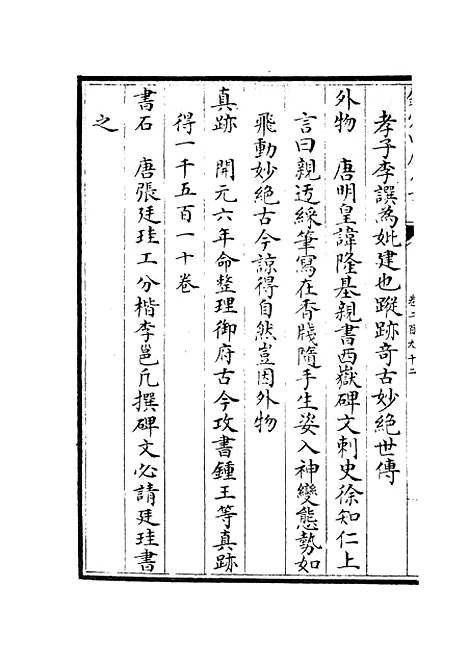 孝子李譔為妣建也蹤跡奇古妙絶世傳
外物　唐明皇諱隆基親書西嶽碑文刺史徐知仁上
言曰親迂綵筆寫在香牋隨手生姿入神變態勢如
飛動妙絶古今諒得自然豈因外物
真跡　開元六年命整理御府古今攻書鍾王等真跡
得一千五百一十卷
書石　唐張廷珪工分楷李邕凡撰碑文必請廷珪書
之
卷二百九十二